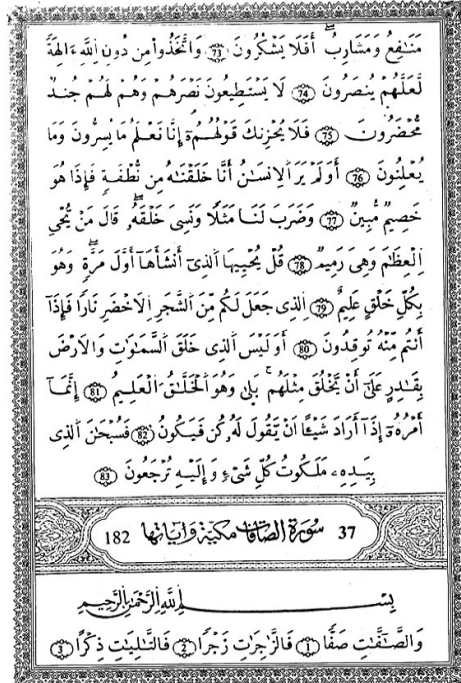 مَنَٰفِعُ وَمَشَارِبُۖ أَفَلَا يَشْكُرُونَ 73 وَاتَّخَذُواْ مِن دُونِ اِ۬للَّهِ ءَالِهَةٗ
لَّعَلَّهُمْ يُنصَرُونَ 74 لَا يَسْتَطِيعُونَ نَصْرَهُمْ وَهُمْ لَهُمْ جُندٞ
مُّحْضَرُونَ 75 فَلَا يُحْزِنكَ قَوْلُهُمُۥٓ إِنَّا نَعْلَمُ مَا يُسِرُّونَ وَمَا
يُعْلِنُونَ 76 أَوَلَمْ يَرَ اَ۬لِانسَٰنُ أَنَّا خَلَقْنَٰهُ مِن نُّطْفَةٖ فَإِذَا هُوَ
خَصِيمٞ مُّبِينٞ 77 وَضَرَبَ لَنَا مَثَلٗا وَنَسِيَ خَلْقَهُۥۖ قَالَ مَنْ يُّحْيِ
اِ۬لْعِظَٰمَ وَهِيَ رَمِيمٞ 78 قُلْ يُحْيِيهَا اَ۬لذِيٓ أَنشَأَهَآ أَوَّلَ مَرَّةٖۖ وَهُوَ
بِكُلِّ خَلْقٍ عَلِيمٌ 79 اِ۬لذِي جَعَلَ لَكُم مِّنَ اَ۬لشَّجَرِ اِ۬لَاخْضَرِ نَارٗا فَإِذَآ
أَنتُم مِّنْهُ تُوقِدُونَ 80 أَوَلَيْسَ اَ۬لذِي خَلَقَ اَ۬لسَّمَٰوَٰتِ وَالَارْضَ
بِقَٰدِرٍ عَلَىٰٓ أَنْ يَّخْلُقَ مِثْلَهُمۚ بَلَىٰ وَهُوَ اَ۬لْخَلَّٰقُ اُ۬لْعَلِيمُ 81 إِنَّمَآ
أَمْرُهُۥٓ إِذَآ أَرَادَ شَيْـًٔا اَنْ يَّقُولَ لَهُۥ كُن فَيَكُونُ 82 فَسُبْحَٰنَ اَ۬لذِي
بِيَدِهِۦ مَلَكُوتُ كُلِّ شَيْءٖ وَإِلَيْهِ تُرْجَعُونَ 83
37 سورة الصافات مكية وآياتها 182
بِسْمِ اِ۬للَّهِ اِ۬لرَّحْمَٰنِ اِ۬لرَّحِيمِ
وَالصَّٰٓفَّٰتِ صَفّٗا 1 فَالزَّٰجِرَٰتِ زَجْرٗا 2 فَالتَّٰلِيَٰتِ ذِكْرًا 3